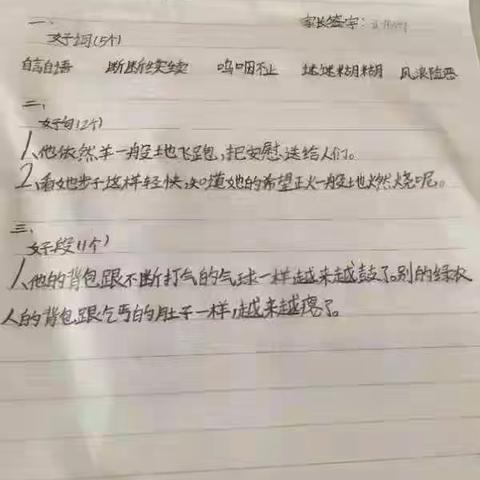 一、
好词(5个) 家长签字:
自言自语 断断续续 呜咽不止 迷迷糊糊 风浪险恶
二、
好句(2个)
1、他依然羊一般地飞跑,把安慰送给人们。
2、看她步子这样轻快,知道她的希望正火一般地燃烧呢。
三、
好段(1个)
1、他的背包跟不断打气的气球一样,越来越鼓了。别的绿衣
人的背包跟乞丐的肚子一样,越来越瘪了。